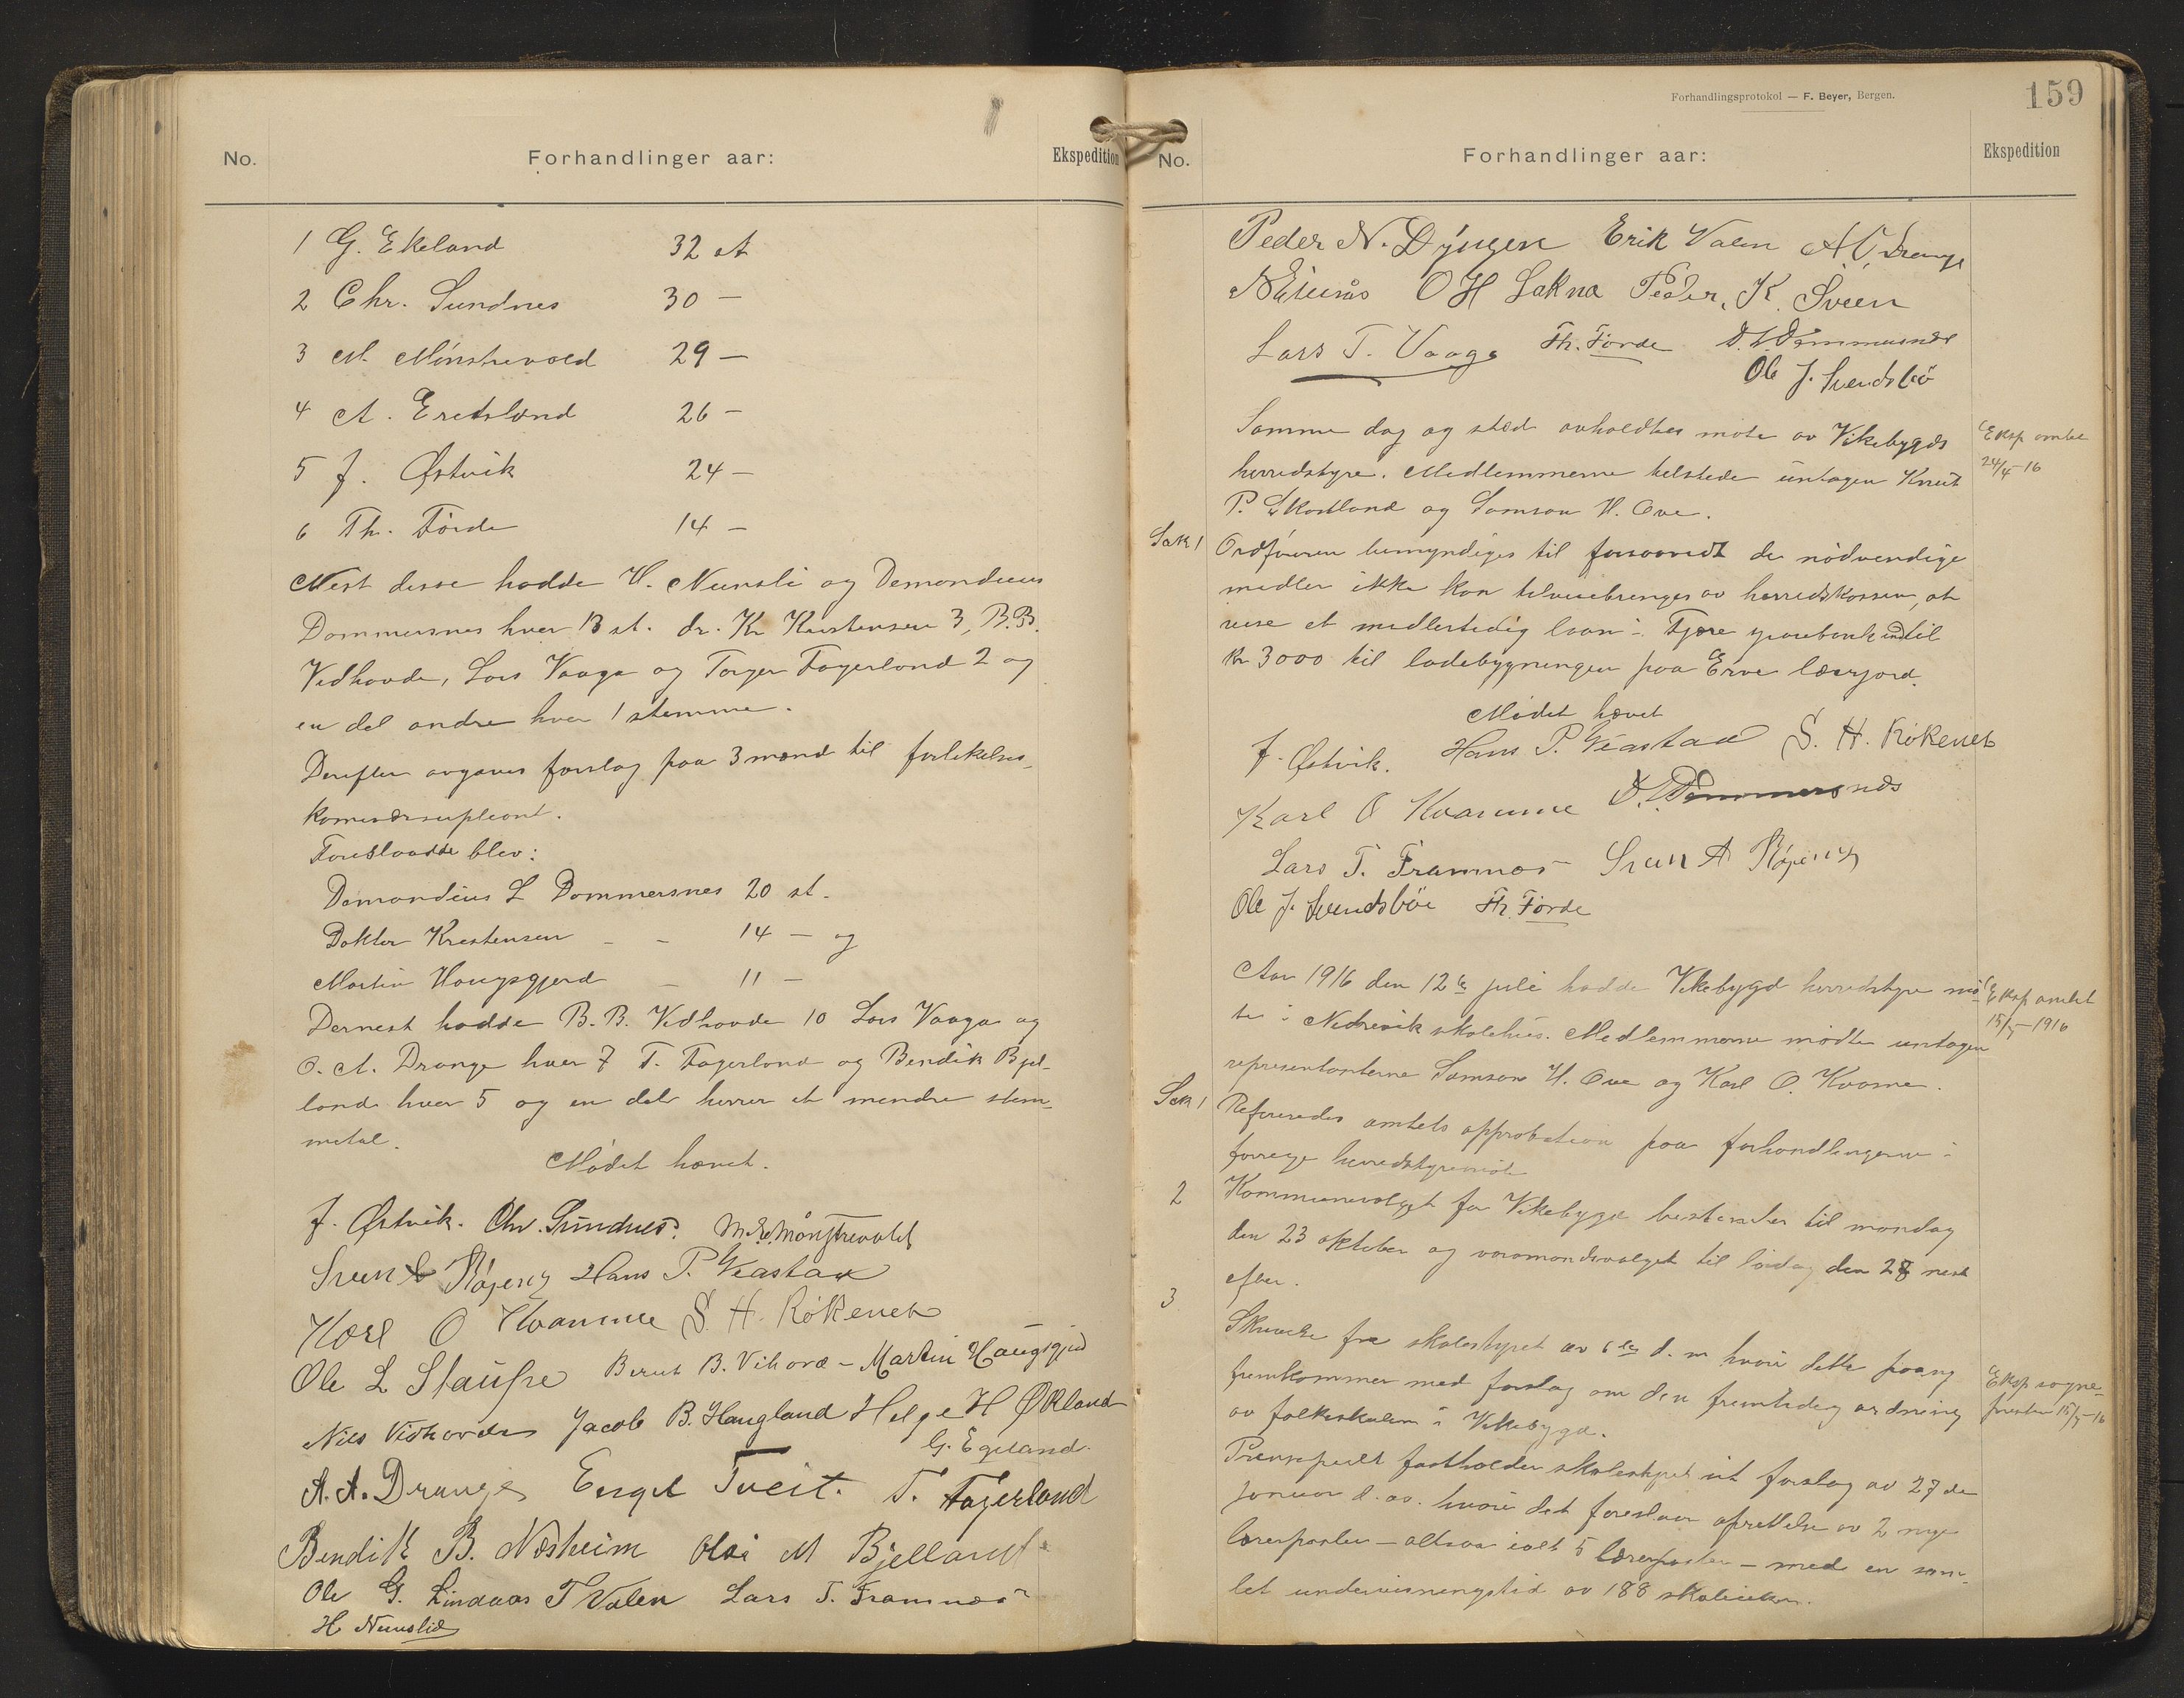 No.
Forhandlinger aar:
Ekspedition
1 G. Ekeland 32 st
2 Chr. Sundnes 30 —
3 M. Mønstrevold 29 —
4 A. Eretsland 26 —
5 J. Østvik 24 —
6 Th. Førde 14 —
Nest disse hadde H. Neunsli og Demandeus
Dommersnes hver 13 st. dr. Kr Kristensen 3, B.B.
Vedhovde, Lars Vaaga og Torger Fagerland 2 og
en del andre hver 1 stemme.
Derefter avgaves forslag paa 3 mænd til forlikelses-
komissærsupleant.
Foreslaadde blev:
Demandius L Dommersnes 20 st.
Doktor Krestensen - - 14 — og
Martin Haugsgjerd - 11 —
Dernest hadde B. B. Vedhovde 10 Lars Vaaga og
O. A. Drange hver 7 T. Fagerland og Bendik Bjel-
land hver 5 og en del herrer et mendre stem-
metal.
Mødet hævet.
J. Østvik. Chr. Sundnes. M. E. Mønstrevold
Sven A Røykenes Hans P. Veastad
Karl O Kvamme S. H. Røkenes
Ole L Staupe Bernt B. Vihovd - Martin Haugsgjerd
Nils Vidhovde Jacob B. Haugland Helge H Økland
G. Egeland.
A. A. Drange Engel Tveit. T. Fagerland
Bendik B. Næsheim Olai M Bjelland
Ole G. Lindaas T Valen Lars T. Framnæs
H Neunslid
Forhandlingsprotokol — F. Beyer, Bergen.
159
No.
Forhandlinger aar:
Ekspedition
Peder N. Dyngen Erik Valen A O Drange
OH Lakna Peder K. Sveen
Lars T. Vaage Th. Førde D. L. Dommersnes
Ole J. Svendsbø
Samme dag og sted avholdtes møte av Vikebygds
Eksp amtet
24/4-16
herredstyre. Medlemmerne telstede untagen Knut
P. Skartland og Samson H. Ove.
Sak 1 Ordføreren bemyndiges til forsaavidt de nødvendige
medler ikke kan telveiebringes av herredskassen, at
reise et medlertidig laan i Fjære sparebank indtil
Kr 3000 til ladebygningen paa Erve lærerjord.
Mødet hævet
J. Østvik. Hans P. Veastad S. H. Røkenes
Karl O Kvamme D. L. Dommersnes
Lars T. Framnæs Sven A Røykenes
Ole J. Svendsbøe Th. Førde
Aar 1916 den 12te juli hadde Vekebygd herredstyre mø-
Eksp amtet
15/7-1916
te i Nedrevik skolehus. Medlemmerne mødte untagen
representanterne Samson H. Ove og Karl O. Kvame.
Sak 1 Refereredes amtets approbation paa forhandlingerne i
forrige herredstyremøte
2 Kommunevalget for Vekebygd bestemtes til mandag
den 23 oktober og varamandsvalget til lørdag den 28 nest
efter.
3
Skrivelse fra skolestyret av 6te d. m hvori dette paany
fremkommer med forslag om den fremtidig ordning
Eksp sogne-
presten 15/7-16
av folkeskulen i Vekebygd.
Prinsipielt fastholder skolestyret sit forslag av 27de
januar d. aa. hvori det foreslaar oprettelse av 2 nye
lærerposter — altsaa ialt 5 lærerposter — med en sam-
let undervisningstid av 188 skoleuker.